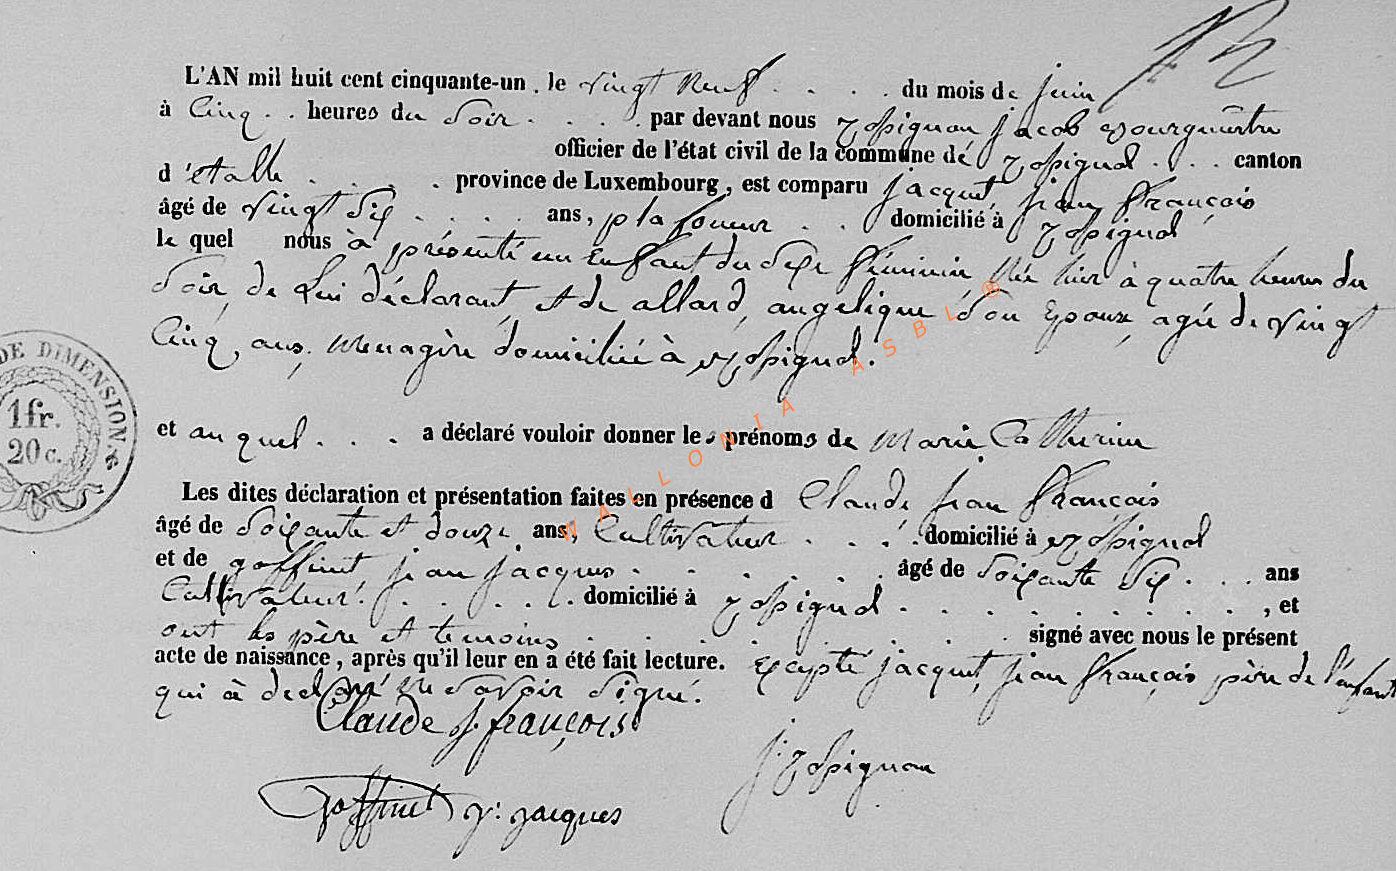 L'AN mil huit cent cinquante-un, le vingt neuf . . . . du mois de juin
à Cinq . . heures du Soir . . . . par devant nous jacob Bourgmestre
officier de l'état civil de la commune de . . . canton
d'étalle . . . . province de Luxembourg, est comparu jacquet, jean François
âgé de vingt Six . . . . ans, plafoneur . . domicilié à
le quel nous à présenté un Enfant du Sexe féminin, Née hier à quatre heures du
Soir, de Lui déclarant, et de allard, angelique Son Epouse, agée de vingt
Cinq, ans, Menagère domiciliée à
et au quel . . . a déclaré vouloir donner les prénoms de Marie, Catherine
Les dites déclaration et présentation faites en présence d Claude, jean François
âgé de Soixante et douze ans, Cultivateur . . . . domicilié à
et de goffinet, jean jacques . . . . . . âgé de Soixante Six . . . ans
Cultivateur . . . . . domicilié à . . . . . . . . . , et
ont les père et temoins . . . . . . . . signé avec nous le présent
acte de naissance, après qu'il leur en a été fait lecture. Excepté jacquet, jean François père de l'enfant
qui à declaré ne Savoir Signé.
Claude J. françois
Goffinet J: Jacques
DE DIMENSION.
1fr.
20c.
WALLONIA ASBL ®